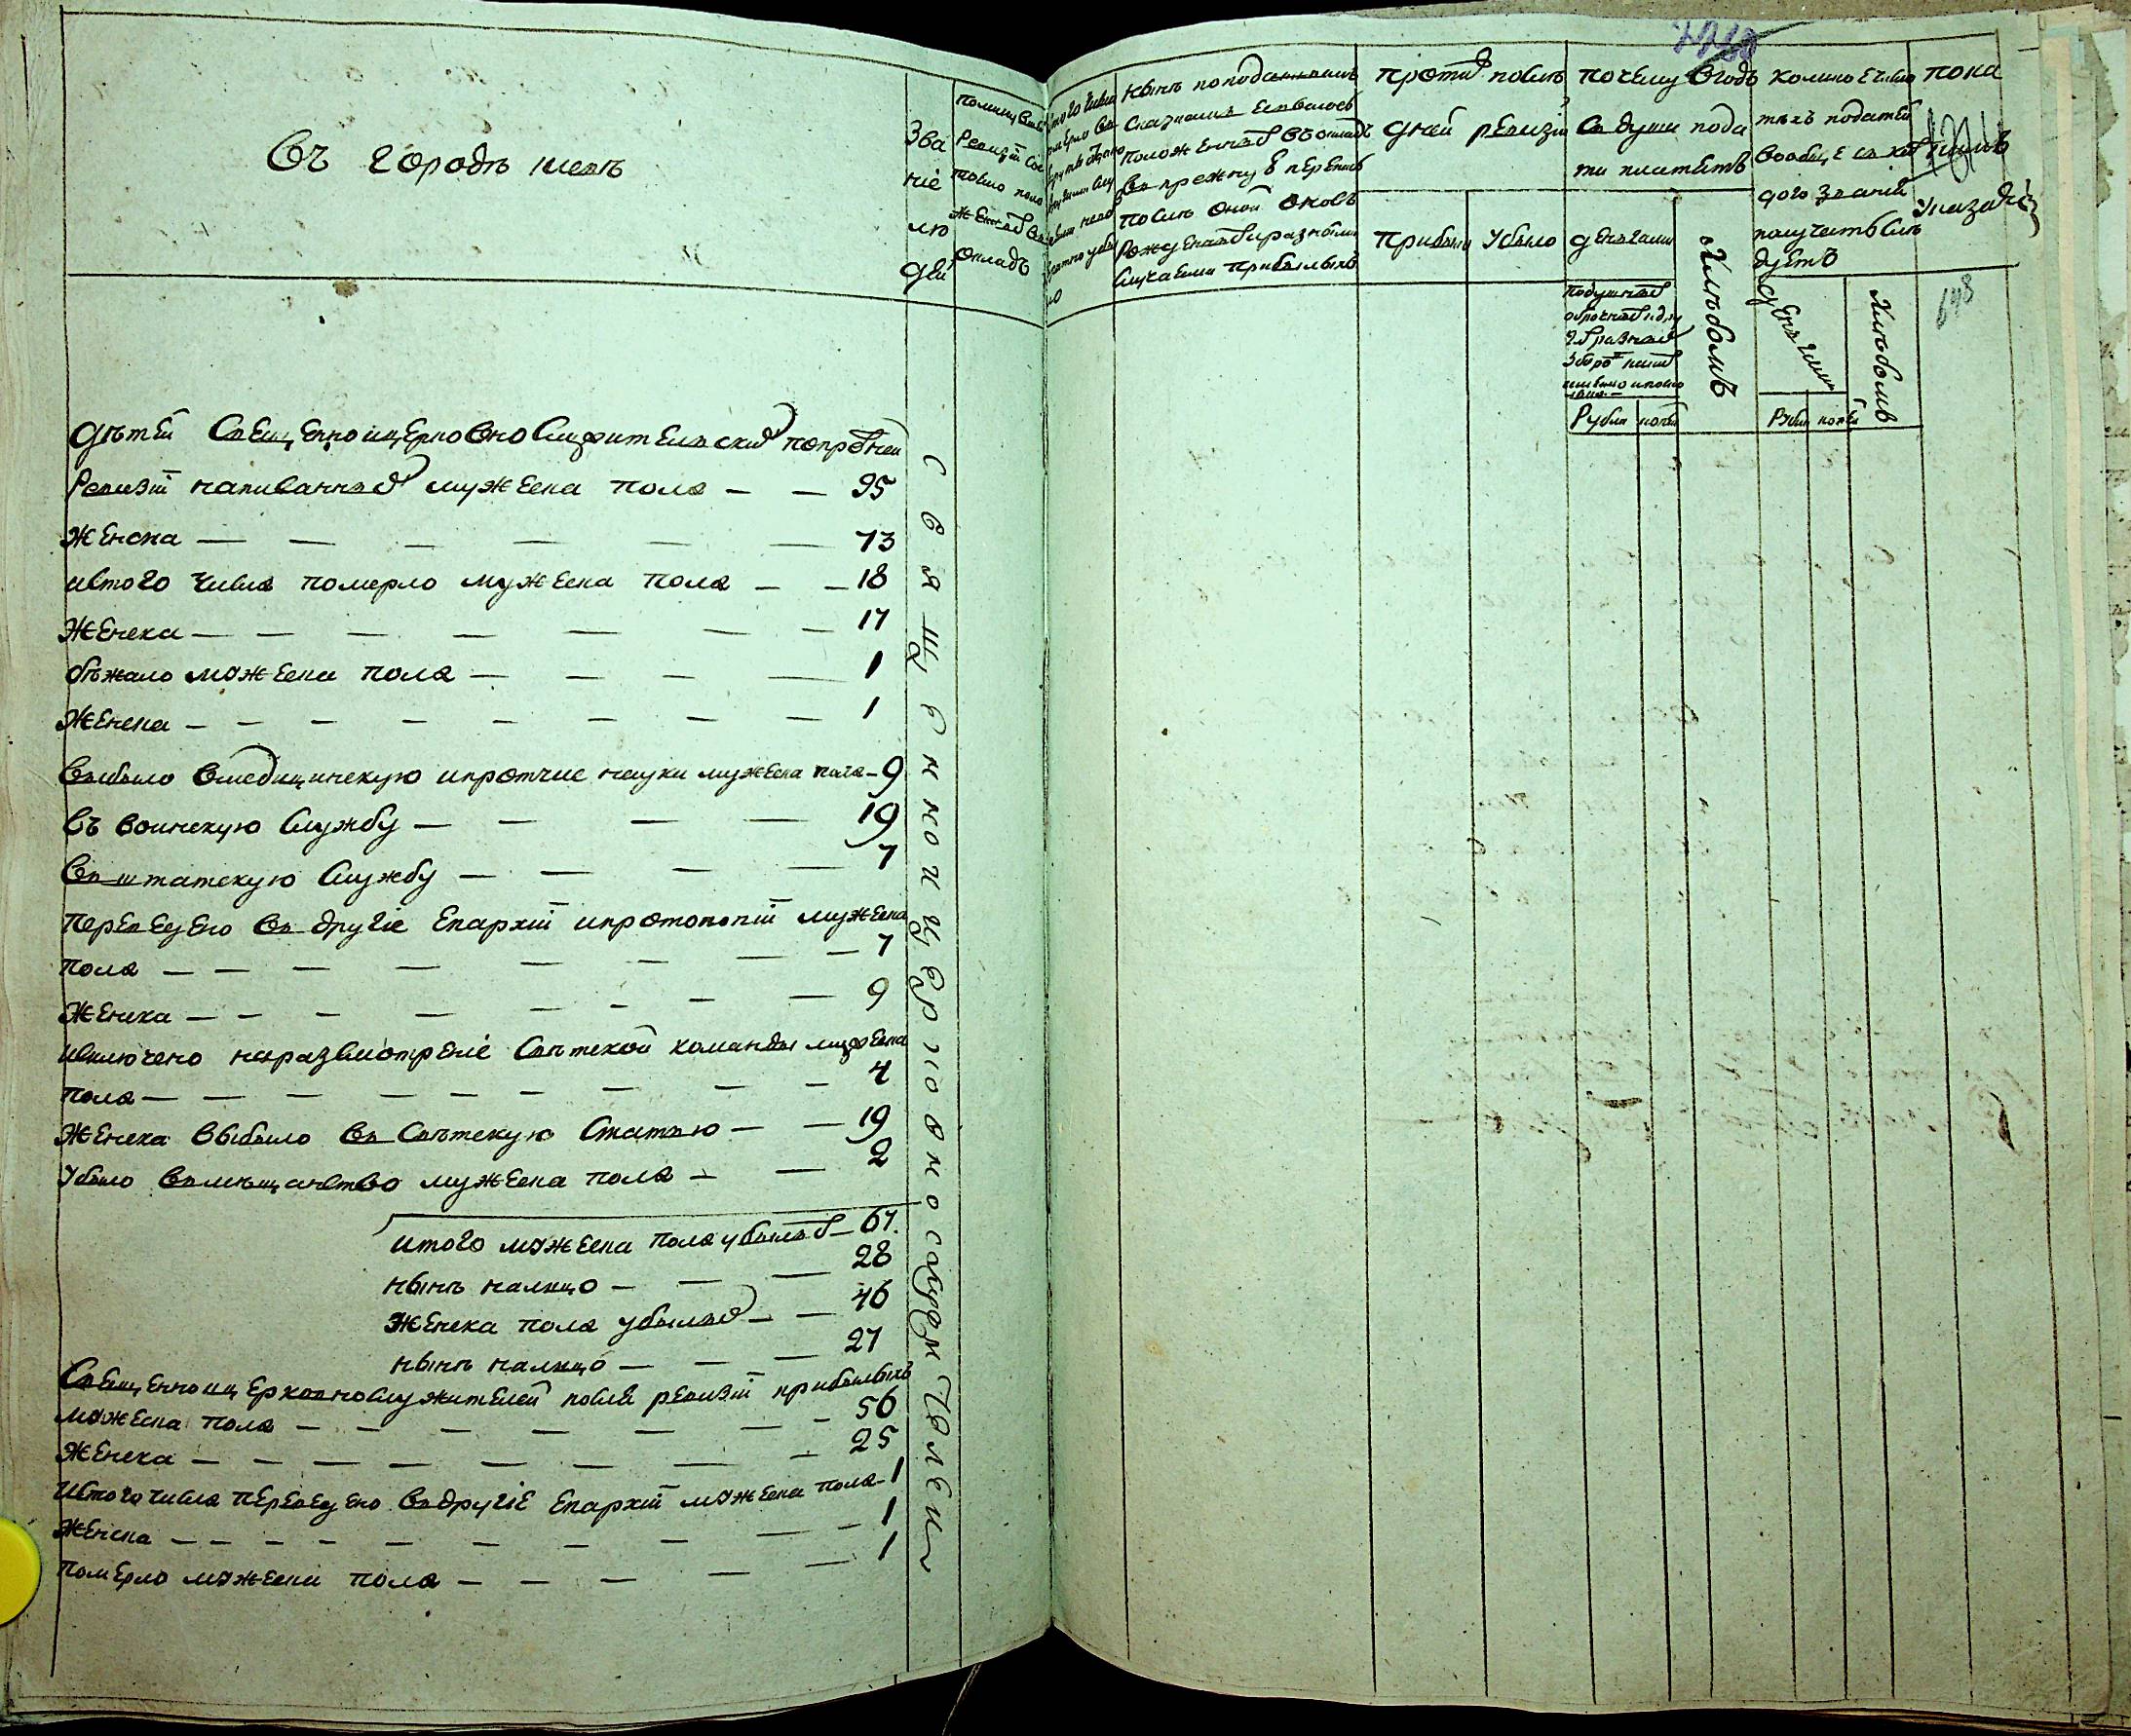 Въ городѣ
Зва
ніе
лю
дей
помину
ревизіи
окладъ
нынѣ по поданнымъ
сказкамъ
положенныхъ въ окладъ
въ прежную перепись
после оной вновь
рожденныхъ и разными
случаями прибылыхъ
противъ послѣ
дней ревизіи
прибыли
убыло
почему въ годъ
съ души пода
ти платитъ
деньгами
хлѣбомъ
рубли копѣй
колико
тѣхъ податей
вообще съ каж
дого званія
получить слѣ
дуетъ
деньгами
хлѣбомъ
рубли копѣй
пока
648
дѣтей священноицерковнослужительскихъ попрежней
ревизіи написанныхъ мужеска пола — — 95
женска — — — — — — 73
истого числа померло мужеска пола — — 18
женска — — — — — — — 17
бѣжало мужеска пола — — — — 1
женска — — — — — — — — 1
выбыло вмедицинскую ипротчие науки мужеска пола — 9
въ воинскую службу — — — — 19
въ штатскую службу — — — — 7
переведено въ другіе епархіи ипротопопіи мужеска
пола — — — — — — — — 7
женска — — — — — — — 9
исключено наразсмотреніе свѣтской команды мужеска
пола — — — — — — — — 4
женска выбыло въ свѣтскую статью — — 19
убыло вмѣщанство мужеска пола — — 2
итого мужеска пола убылыхъ — 67.
нынѣ налицо — — — 28
женска пола убылыхъ — — 46
нынѣ налицо — — — 27
священноицерковнослужителей послѣ ревизіи прибылыхъ
мужеска пола — — — — — — — 56
женска — — — — — — — — 25
истого числа переведено въдругіе епархіи мужеска пола — 1
женска — — — — — — — — — 1
померло мужеска пола — — — — — 1
священноицерковнослужители